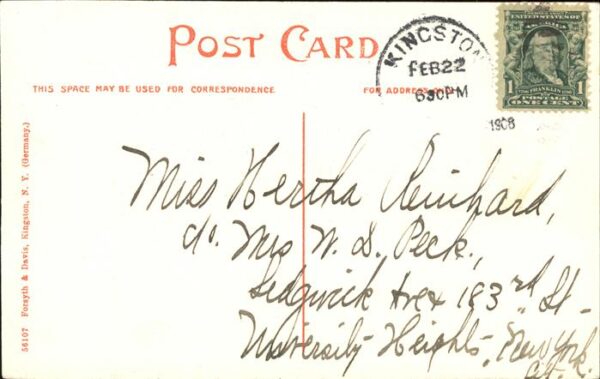 POST CARD
THIS SPACE MAY BE USED FOR CORRESPONDENCE
FOR ADDRESS ONLY
KINGSTON
FEB 22
630PM
1908
UNITED STATES OF AMERICA
1 FRANKLIN 1
POSTAGE
ONE CENT
Miss Hertha Reinhard,
c/o. Mrs W. D. Peck,
Sedgwick Ave & 183rd St
University Heights, New York
City.
56107 Forsyth & Davis, Kingston, N. Y. (Germany.)